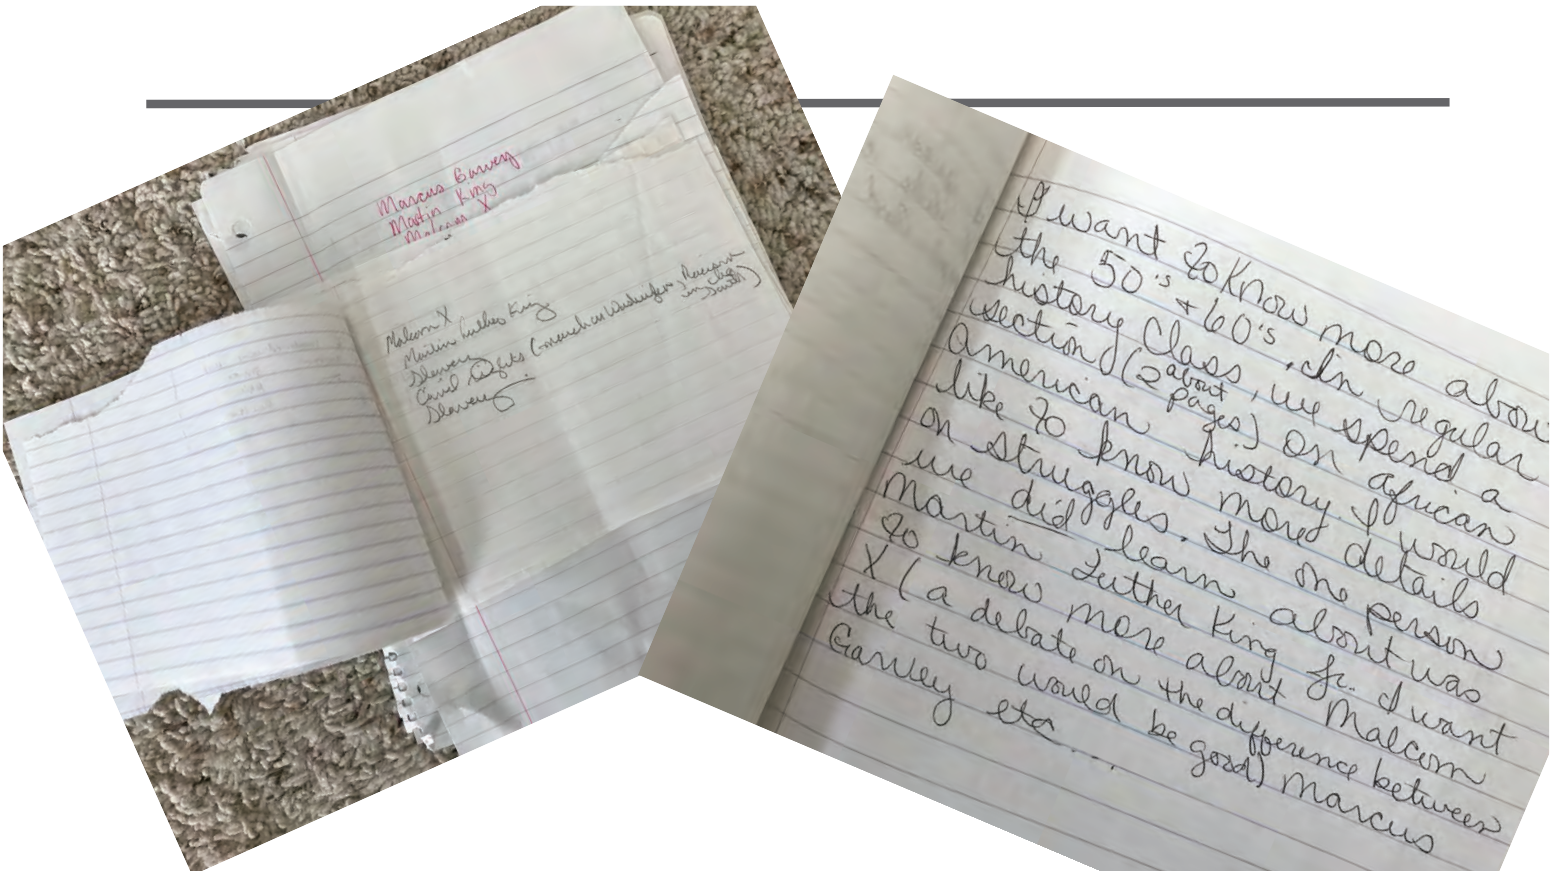 Marcus Garvey
Martin King
Malcom X
Malcom X
Martin Luther King
Slavery
Civil Rights (march on Washington, Racism
in the
South)
Slavery
I want to know more about
the 50's + 60's. In regular
history class, we spend a
section (2 about pages) on african
american history I would
like to know more details
on struggles. The one person
we did learn about was
Martin Luther King Jr. I want
to know more about Malcom
X (a debate on the difference between
the two would be good) Marcus
Garvey etc....